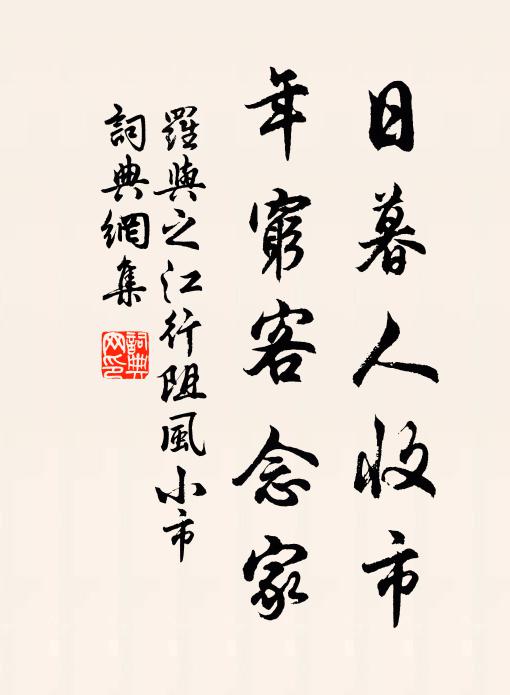 日暮人收市
年窮客念家
羅與之江行阻風小市
詞典網集
詞典網印